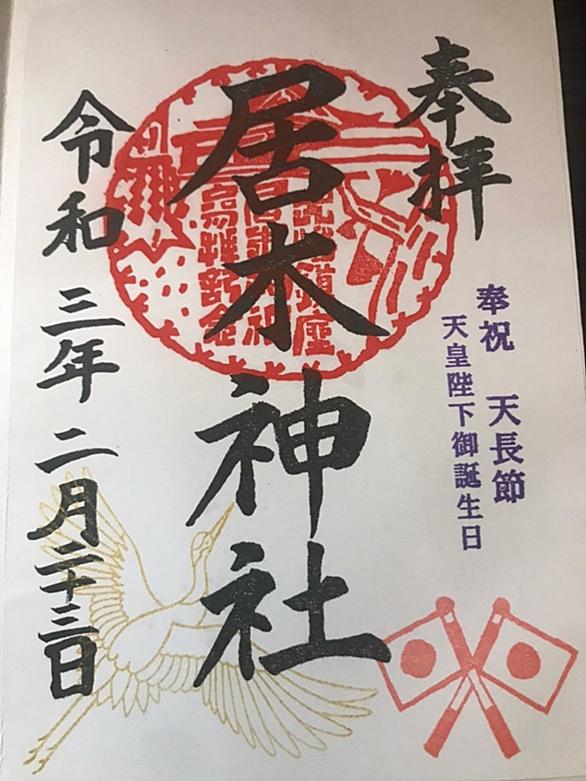 奉拝
奉祝 天長節
天皇陛下御誕生日
居木神社
令和三年二月二十三日